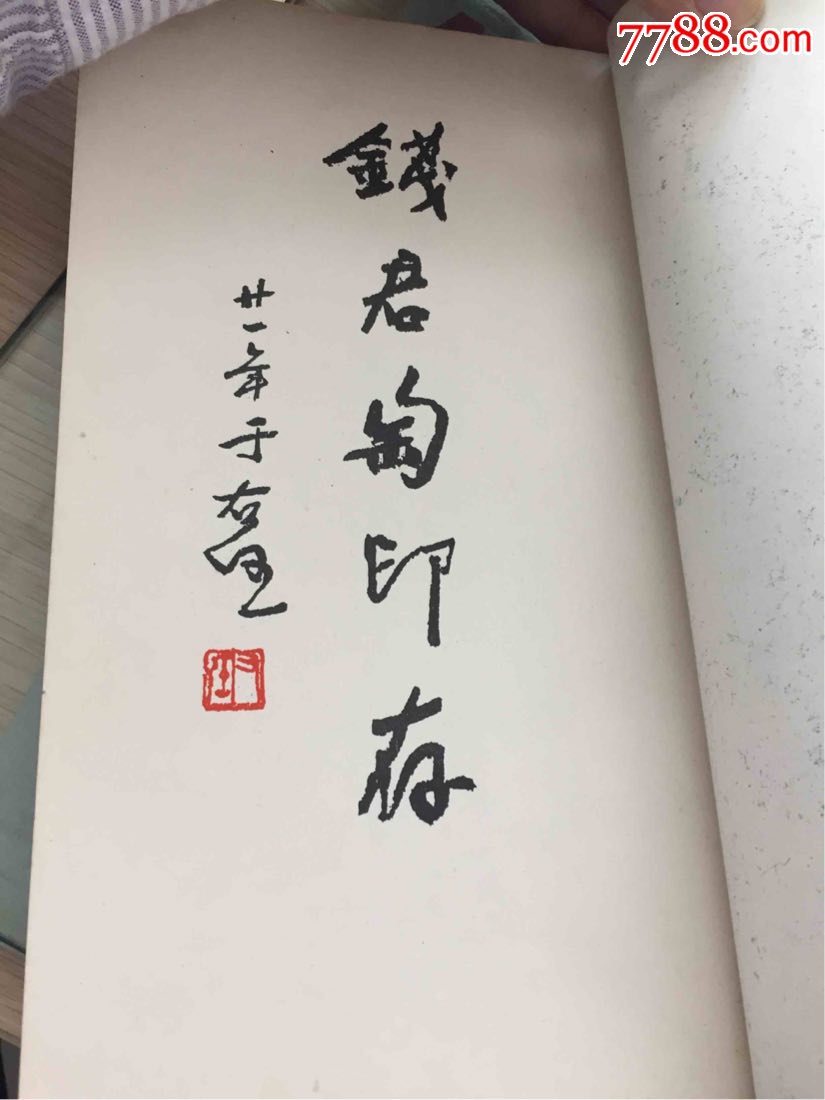 7788.com
錢君匋印存
廿一年于右任
右任